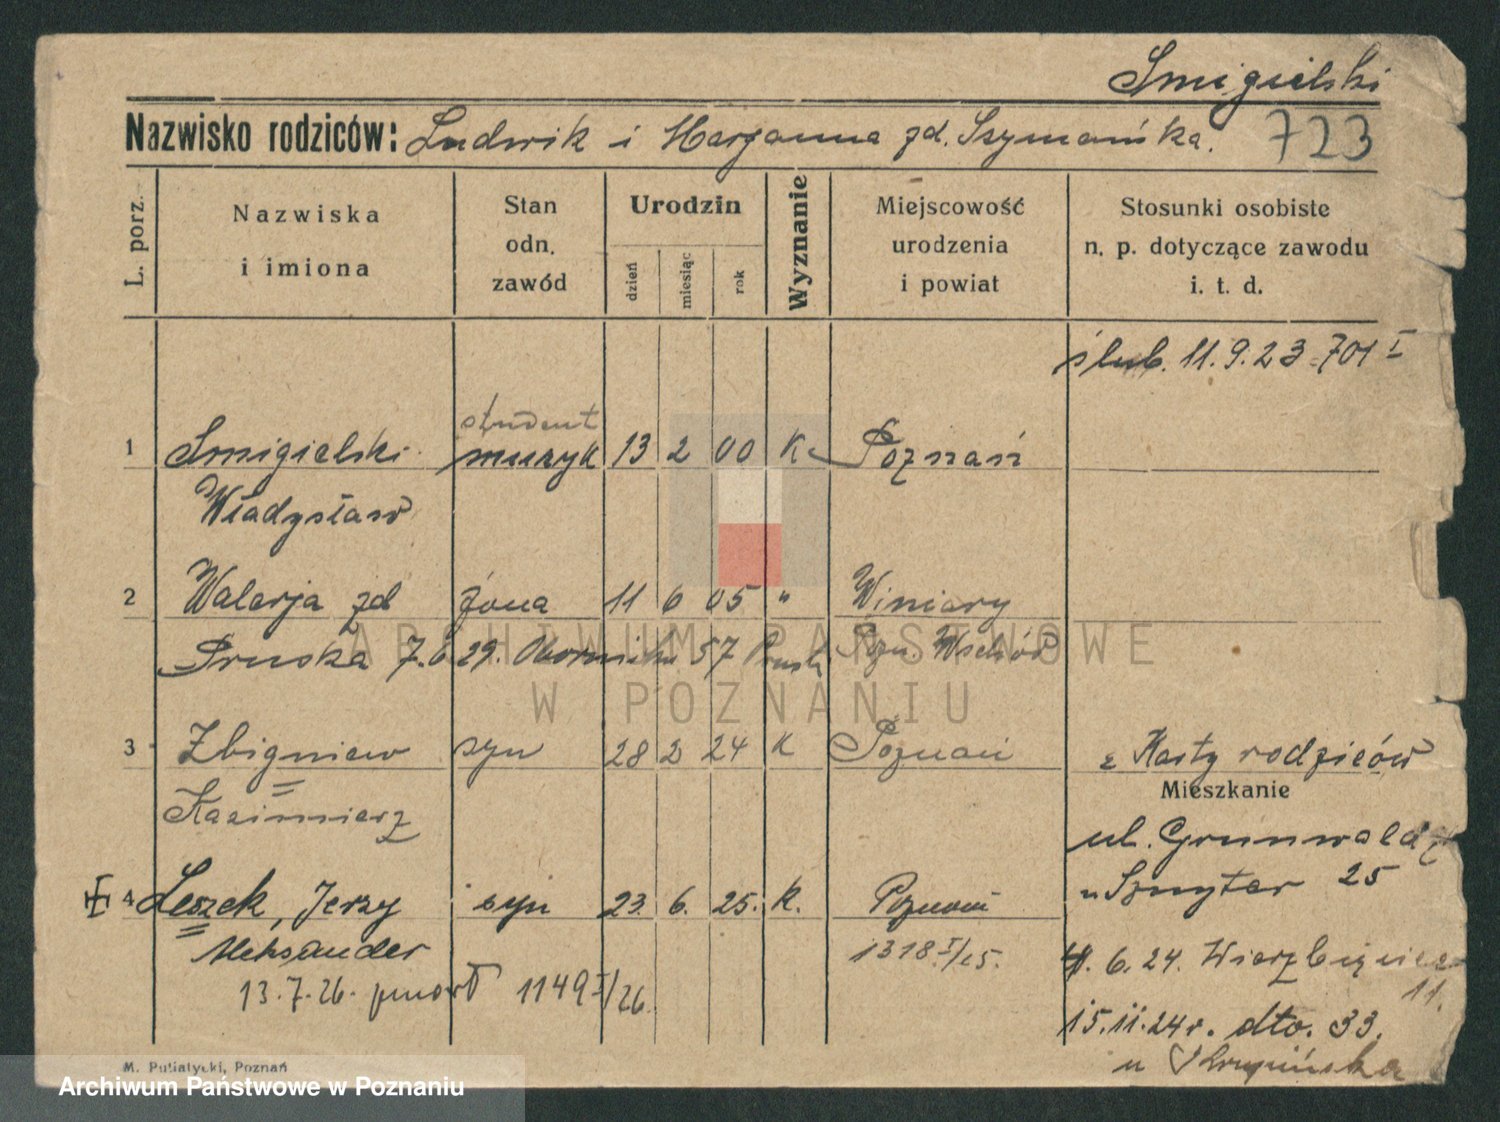 Smigielski
Nazwisko rodziców: Ludwik i Marjanna zd. Szymańska. 723
L. porz.
Nazwiska i imiona
Stan odn. zawód
Urodzin
dzień
miesiąc
rok
Wyznanie
Miejscowość urodzenia i powiat
Stosunki osobiste n. p. dotyczące zawodu i. t. d.
ślub. 11.9.23 701 I
student
1 Smigielski muzyk 13 2 00 K Poznań
Władysław
2 Walerja zd żona 11 6 05 " Winiary
Pruska 7.6.29. Obornika 57 Pzn. Wschód
3 Zbigniew syn 28 2 24 K Poznań z Karty rodziców
Mieszkanie
Kazimierz
ul. Grunwaldz
4 Leszek, Jerzy syn 23. 6. 25. k. Poznań
u Sznyter 25
Aleksander 1318 I/25.
6.24. Wierzbięcice 11.
13.7.26. zmarł 1149 I/26.
15.11.24r. dto. 33.
u
M. Putiatycki, Poznań
ARCHIWUM PAŃSTWOWE
W POZNANIU
Archiwum Państwowe w Poznaniu